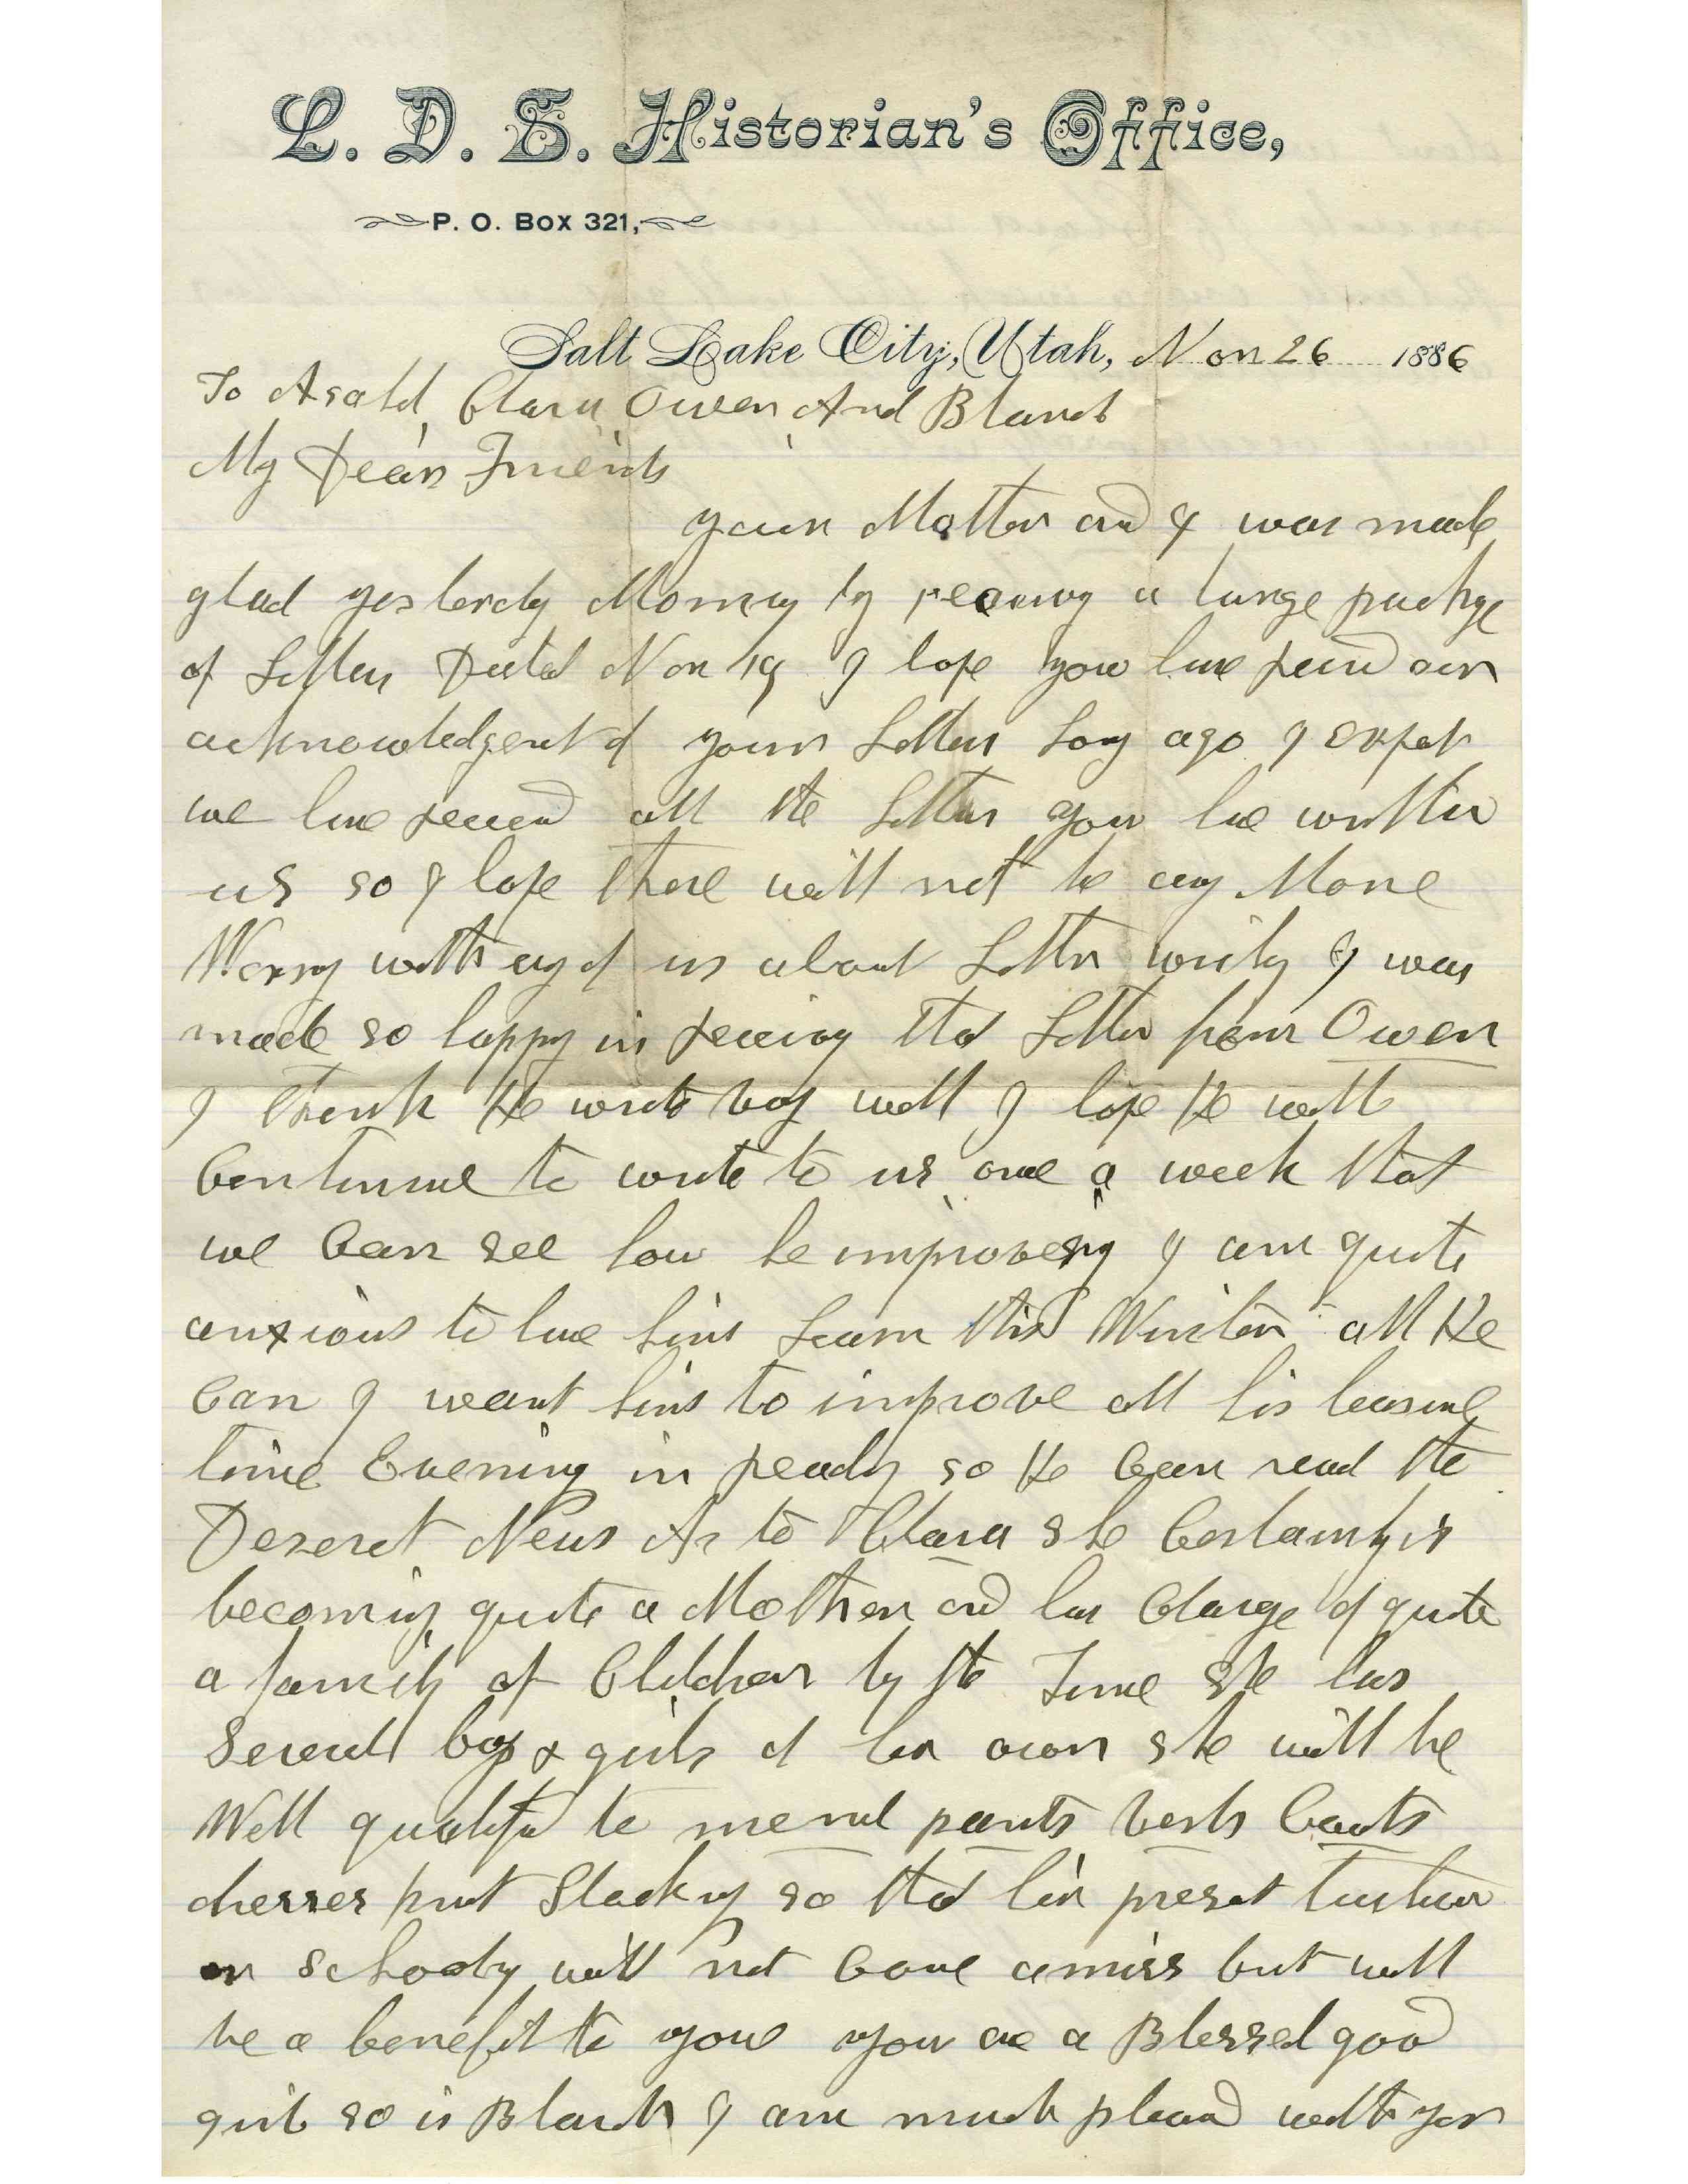 L. D. S. Historian's Office,
P. O. Box 321,
Salt Lake City, Utah, Nov 26 1886
To Asahel, Clara, Owen And Blanch
My Dear Friends
your Mother and I was made
glad yesterdy Morning by receivng a large packge
of Letters Dated Nov 19 I hope you have recivd our
acknowledgent of your Letters Long ago I expet
we have receivd all the Letters you have written
us so I hope there will not be any More
Worry with any of us about Letter writing I was
made so happy in receiving that Letter from Owen
I think He writes very well I hope He will
Continue to write to us once a week that
we Can see how he improveing I am quite
anxious to have him Learn this Winter all He
Can I want him to improve all his leasure
time Evening in readig so He Can read the
Deseret News As to Clara she Certainly is
becoming quite a Mother and has Charge of quite
a family of Children by the Time she has
Several boys & girls of her own she will be
Well qualifid to mend pants vests Coats
dresses knit Stockings so that her preset
on schooling will not Come amiss but will
be a benefit to you you are a Blessed good
girl so is Blanch I am much pleasd with your